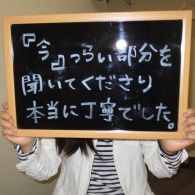 『今』つらい部分を
聞いてくださり
本当に丁寧でした。